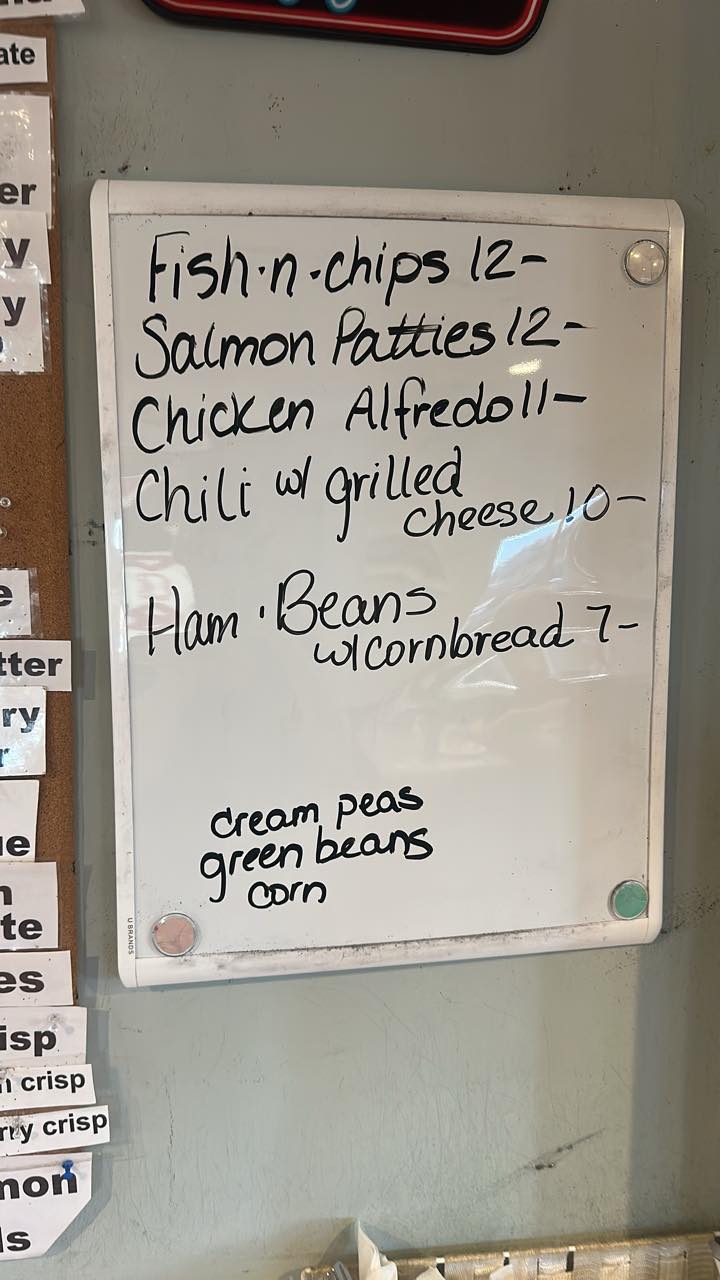 Fish·n·chips 12-
Salmon Patties 12-
Chicken Alfredo 11-
Chili w/ grilled
cheese 10-
Ham · Beans
w/ cornbread 7-
cream peas
green beans
corn
U BRANDS
ate
er
y
y
e
tter
ry
r
te
es
isp
crisp
ry crisp
mon
ls